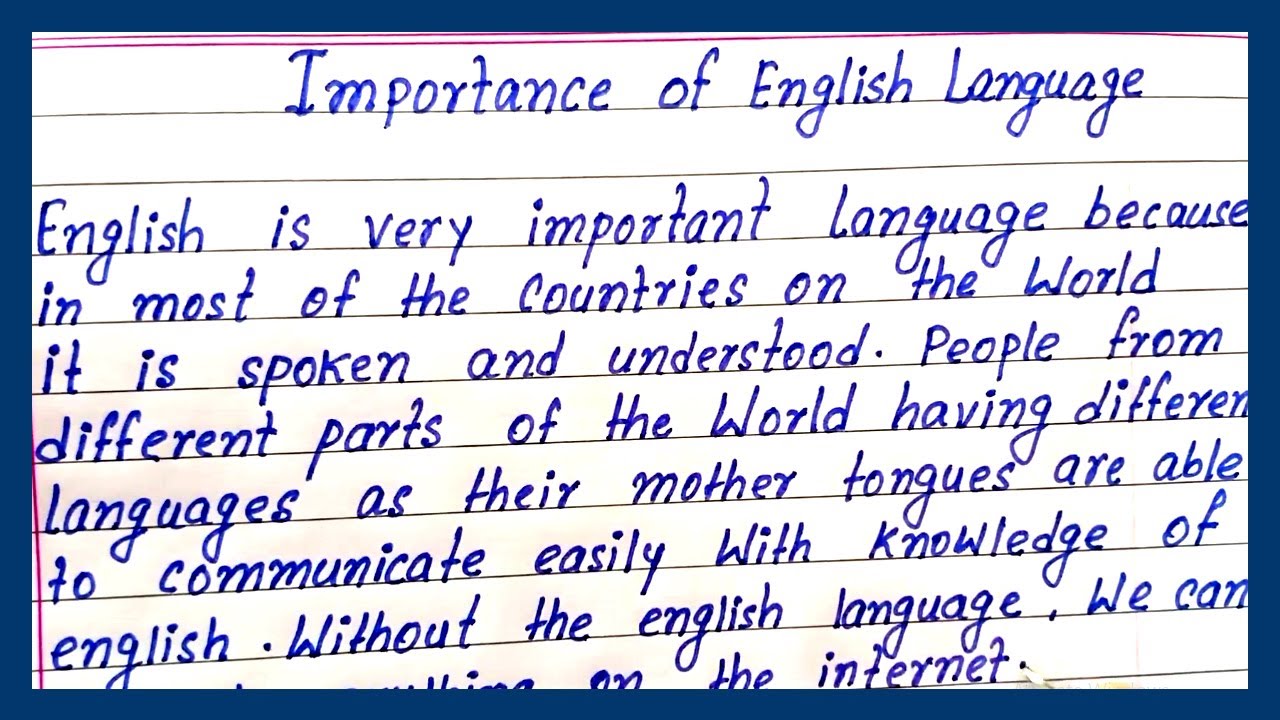 Importance of English Language
English is very important language because
in most of the countries on the World
it is spoken and understood. People from
different parts of the World having differen
languages as their mother tongues are able
to communicate easily With Knowledge of
english. Without the english language. We can
on the internet.